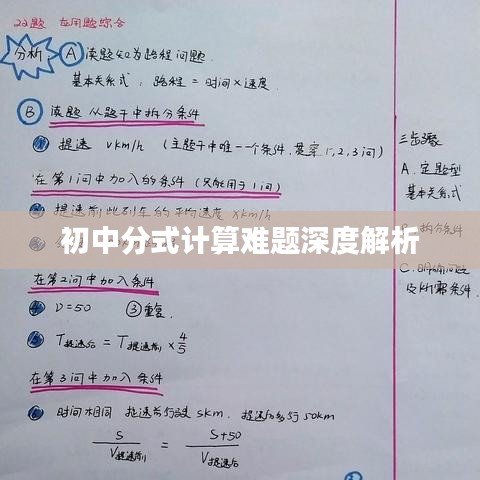 22题 应用题综合
分析: Ⓐ 读题知为路程问题.
基本关系式: 路程 = 时间×速度.
Ⓑ 读题 从题干中拆分条件
① 提速 vkm/h (主题干中唯一一个条件.贯穿1,2,3问)
在第1问中加入的条件 (只能用于1问)
提速前此列车的平均速度 xkm/h
初中分式计算难题深度解析
在第2问中加入条件
④ v=50 ③重复.
⑤ T提速后 = T提速前 × 4/5
在第3问中加入条件
⑥ 时间相同 提速前行驶 skm. 提速后多行50km
S/V提速前 = S+50/V提速后
三步骤
A. 定题型
基本关系式
拆分条件
C. 明确问法
及所需条件.